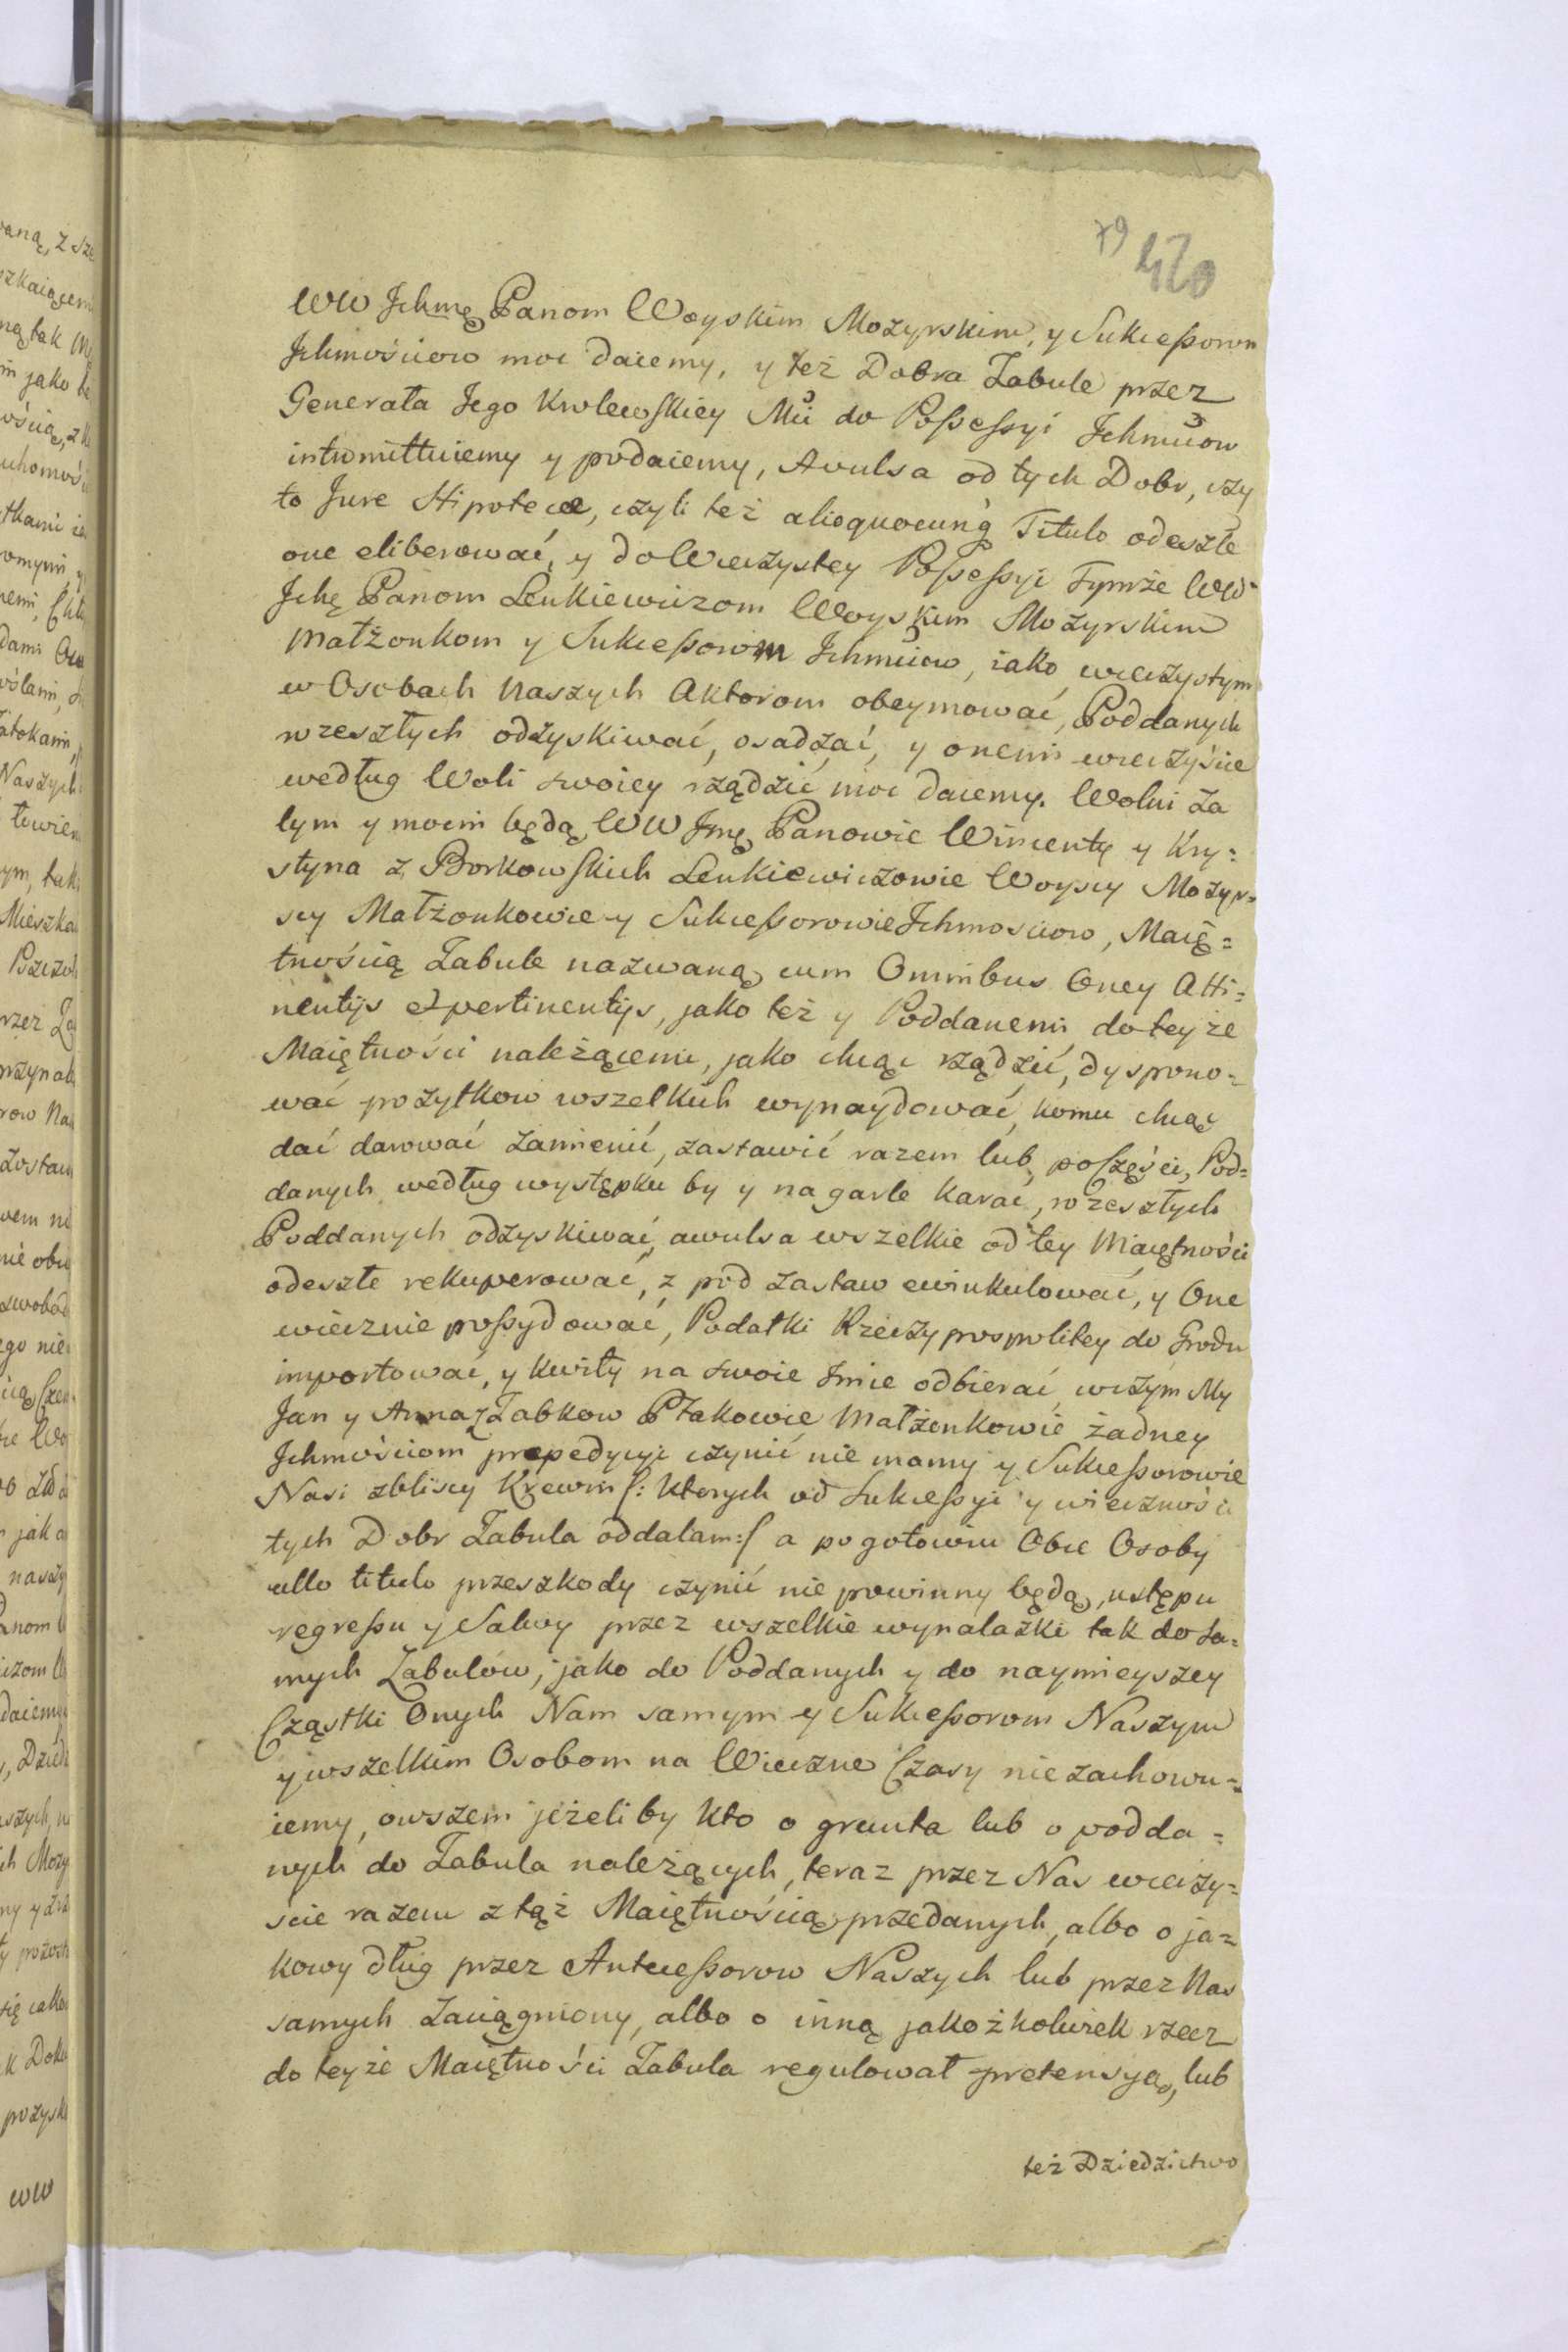 79
420
WW Jchmę Panom Woyskim Mozyrskim, y Sukceßorom
Jchmościow moc daiemy, y też Dobra Zabule przez
Generała Jego Krolewskiey Mci do Poßeßyi Jchmciow
intromittuiemy y podaiemy, Avulsa od tych Dobr, czy
to Jure Hipotecæ, czyli też alioquocunq Titulo odeszłe
one eliberować, y do Wieczystey Poßeßyi Tymże WW
Jchę Panom Lenkiewiczom Woyskim Mozyrskim
Małżonkom y Sukceßorom Jchmciow, iako wieczystym
w Osobach Naszych Aktorom obeymować, Poddanych
rozeszłych odzyskiwać, osadzać, y onemi wieczyście
według Woli swoiey rządzić moc daiemy. Wolni za
tym y mocni będą WW Jmę Panowie Wincenty y Kry=
styna z Borkowskich Lenkiewiczowie Woyscy Mozyr=
scy Małżonkowie y Sukceßorowie Jchmosciow, Maię=
tnością Zabule nazwaną cum Omnibus Oney Atti=
nentijs et pertinentijs, jako też y Poddanemi do teyże
Maiętności należącemi, jako chcąc rządzić, dyspono=
wać pożytkow wszelkich wynaydować, komu chcąc
dać darować zamienić, zastawić razem lub poCzęści, Pod=
danych według występku by y na garle karać, rozeszłych
Poddanych odzyskiwać, awulsa wszelkie od tey Maiętności
odeszłe rekuperować, z pod zastaw ewinkulować, y One
wiecznie poßydować, Podatki Rzeczypospolitey do Grodu
importować, y kwity na swoie Jmie odbierać, wczym My
Jan y Anna z Zabkow Ptakowie Małżonkowie żadney
Jchmościom prepedycyi czynić nie mamy y Sukceßorowie
Nasi zbliscy Krewni /: ktorych od Sukceßyi y wieczności
tych Dobr Zabula oddalam :/ a pogotowiu Obce Osoby
ullo titulo przeszkody czynić nie powinny będą, ustępu
regreßu y Salwy przez wszelkie wynalazki tak do sa=
mych Zabulów, jako do Poddanych y do naymieyszey
Cząstki Onych Nam samym y Sukceßorom Naszym
y wszelkim Osobom na Wieczne Czasy niezachowu=
iemy, owszem jeżeliby kto o grunta lub o podda=
nych do Zabula należących, teraz przez Nas wieczy=
ście razem z tąż Maiętnością przedanych, albo o ja=
kowy dług przez Anteceßorow Naszych lub przez Nas
samych zaciągniony, albo o inną jakożkolwiek rzecz
do teyże Maiętności Zabula regulował pretensyą, lub
też Dziedzictwo